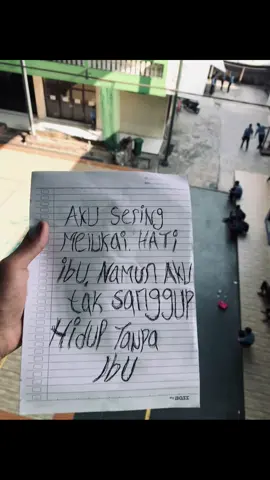 AKU SERING
MELUKAI HATI
IBU, NAMUN AKU
tak SANGGUP
HIDUP TANPA
IBU